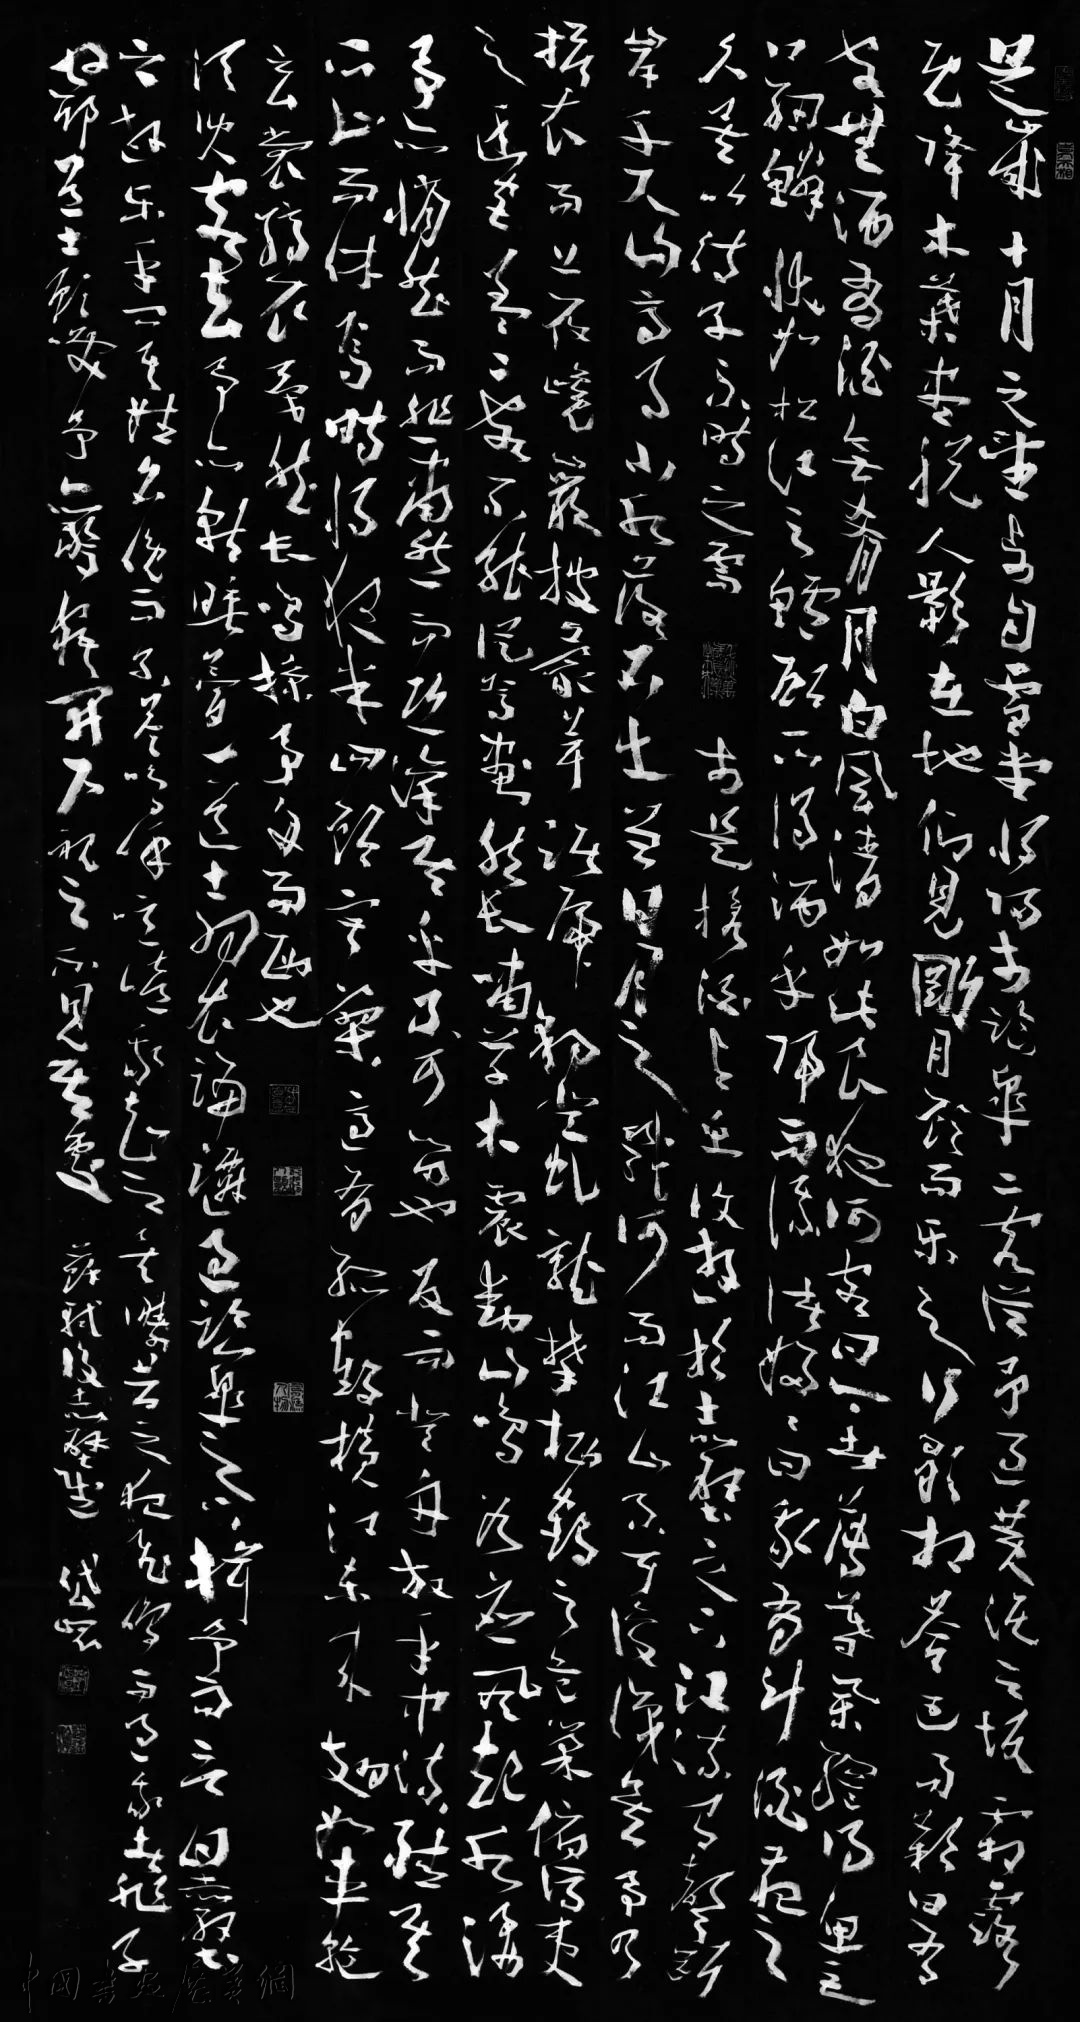 是歲十月之望步自雪堂將歸于臨皋二客從予過黃泥之坂霜露
既降木葉盡脫人影在地仰見明月顧而樂之行歌相答已而歎曰有
客無酒有酒無肴月白風清如此良夜何客曰今者薄暮舉網得魚巨
口細鱗狀如松江之鱸顧安所得酒乎歸而謀諸婦婦曰我有斗酒藏之
久矣以待子不時之需 於是攜酒與魚復遊於赤壁之下江流有聲斷
岸千尺山高月小水落石出曾日月之幾何而江山不可復識矣予乃
攝衣而上履巉巖披蒙茸踞虎豹登虬龍攀栖鶻之危巢俯馮夷
之幽宮蓋二客不能從焉劃然長嘯草木震動山鳴谷應風起水涌
予亦悄然而悲肅然而恐凜乎其不可留也反而登舟放乎中流聽其
所止而休焉時將夜半四顧寂寥適有孤鶴橫江東來翅如車輪
玄裳縞衣戛然長鳴掠予舟而西也
須臾客去予亦就睡夢一道士羽衣蹁躚過臨皋之下揖予而言曰赤壁
之遊樂乎問其姓名俛而不答嗚呼噫嘻我知之矣疇昔之夜飛鳴而過我者非子
也耶道士顧笑予亦驚寤開戶視之不見其處 蘇軾後赤壁賦
中國書畫展賽網